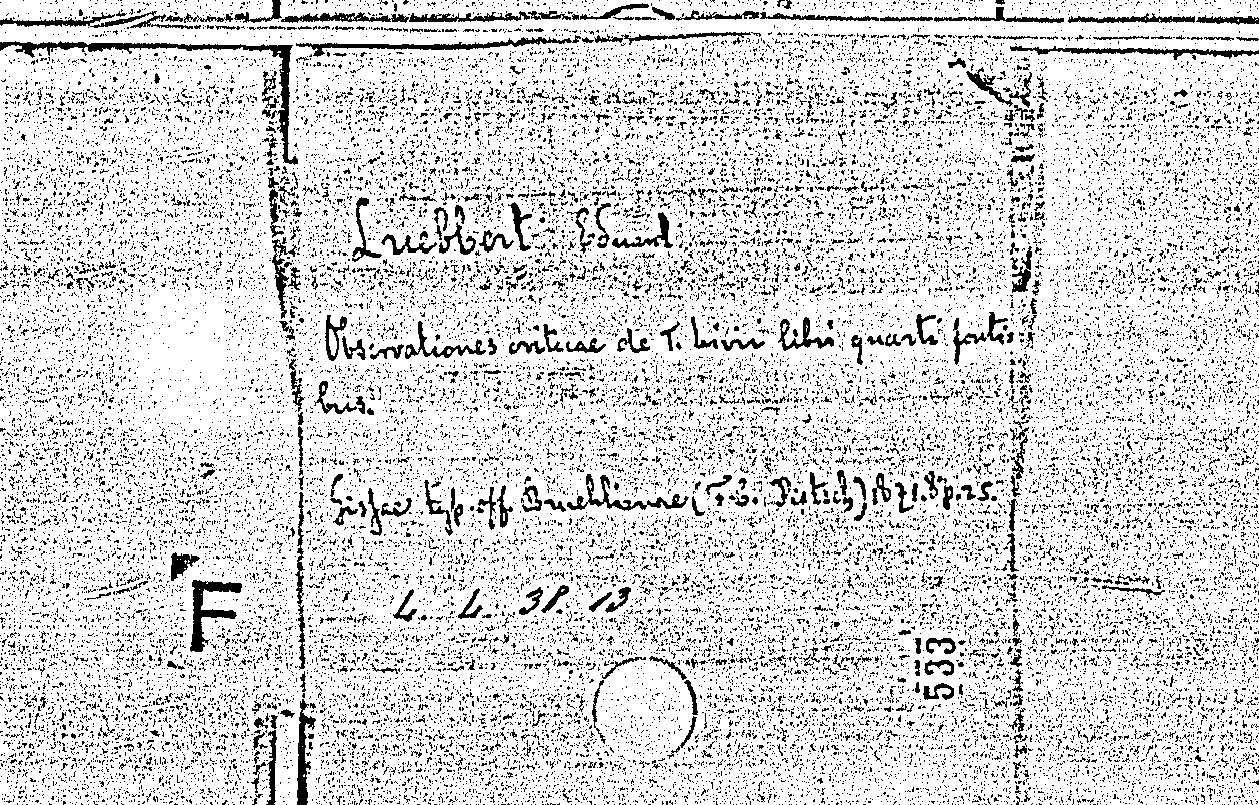 Luebbert Eduard.
Observationes criticae de T. Livii libri quarti fonti-
bus.
Gisfae typ. off. Bruehlianae (F. C. Pietsch) 1871. 8° p. 25.
L. L. 38. 13
F
533